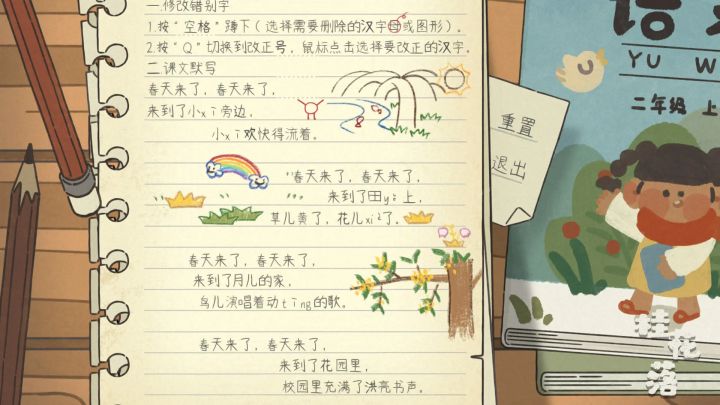 一.修改错别字
1.按“空格”蹲下(选择需要删除的汉字母或图形)。
2.按“Q”切换到改正号,鼠标点击选择要改正的汉字。
二.课文默写
春天来了,春天来了,
来到了小xī旁边,
小xī欢快得流着。
春天来了,春天来了,
来到了田yě上,
草儿黄了,花儿xiè了。
春天来了,春天来了,
来到了月儿的家,
鸟儿演唱着动tīng的歌。
春天来了,春天来了,
来到了花园里,
校园里充满了洪亮书声。
重置
退出
YU W
二年级 上
桂花落